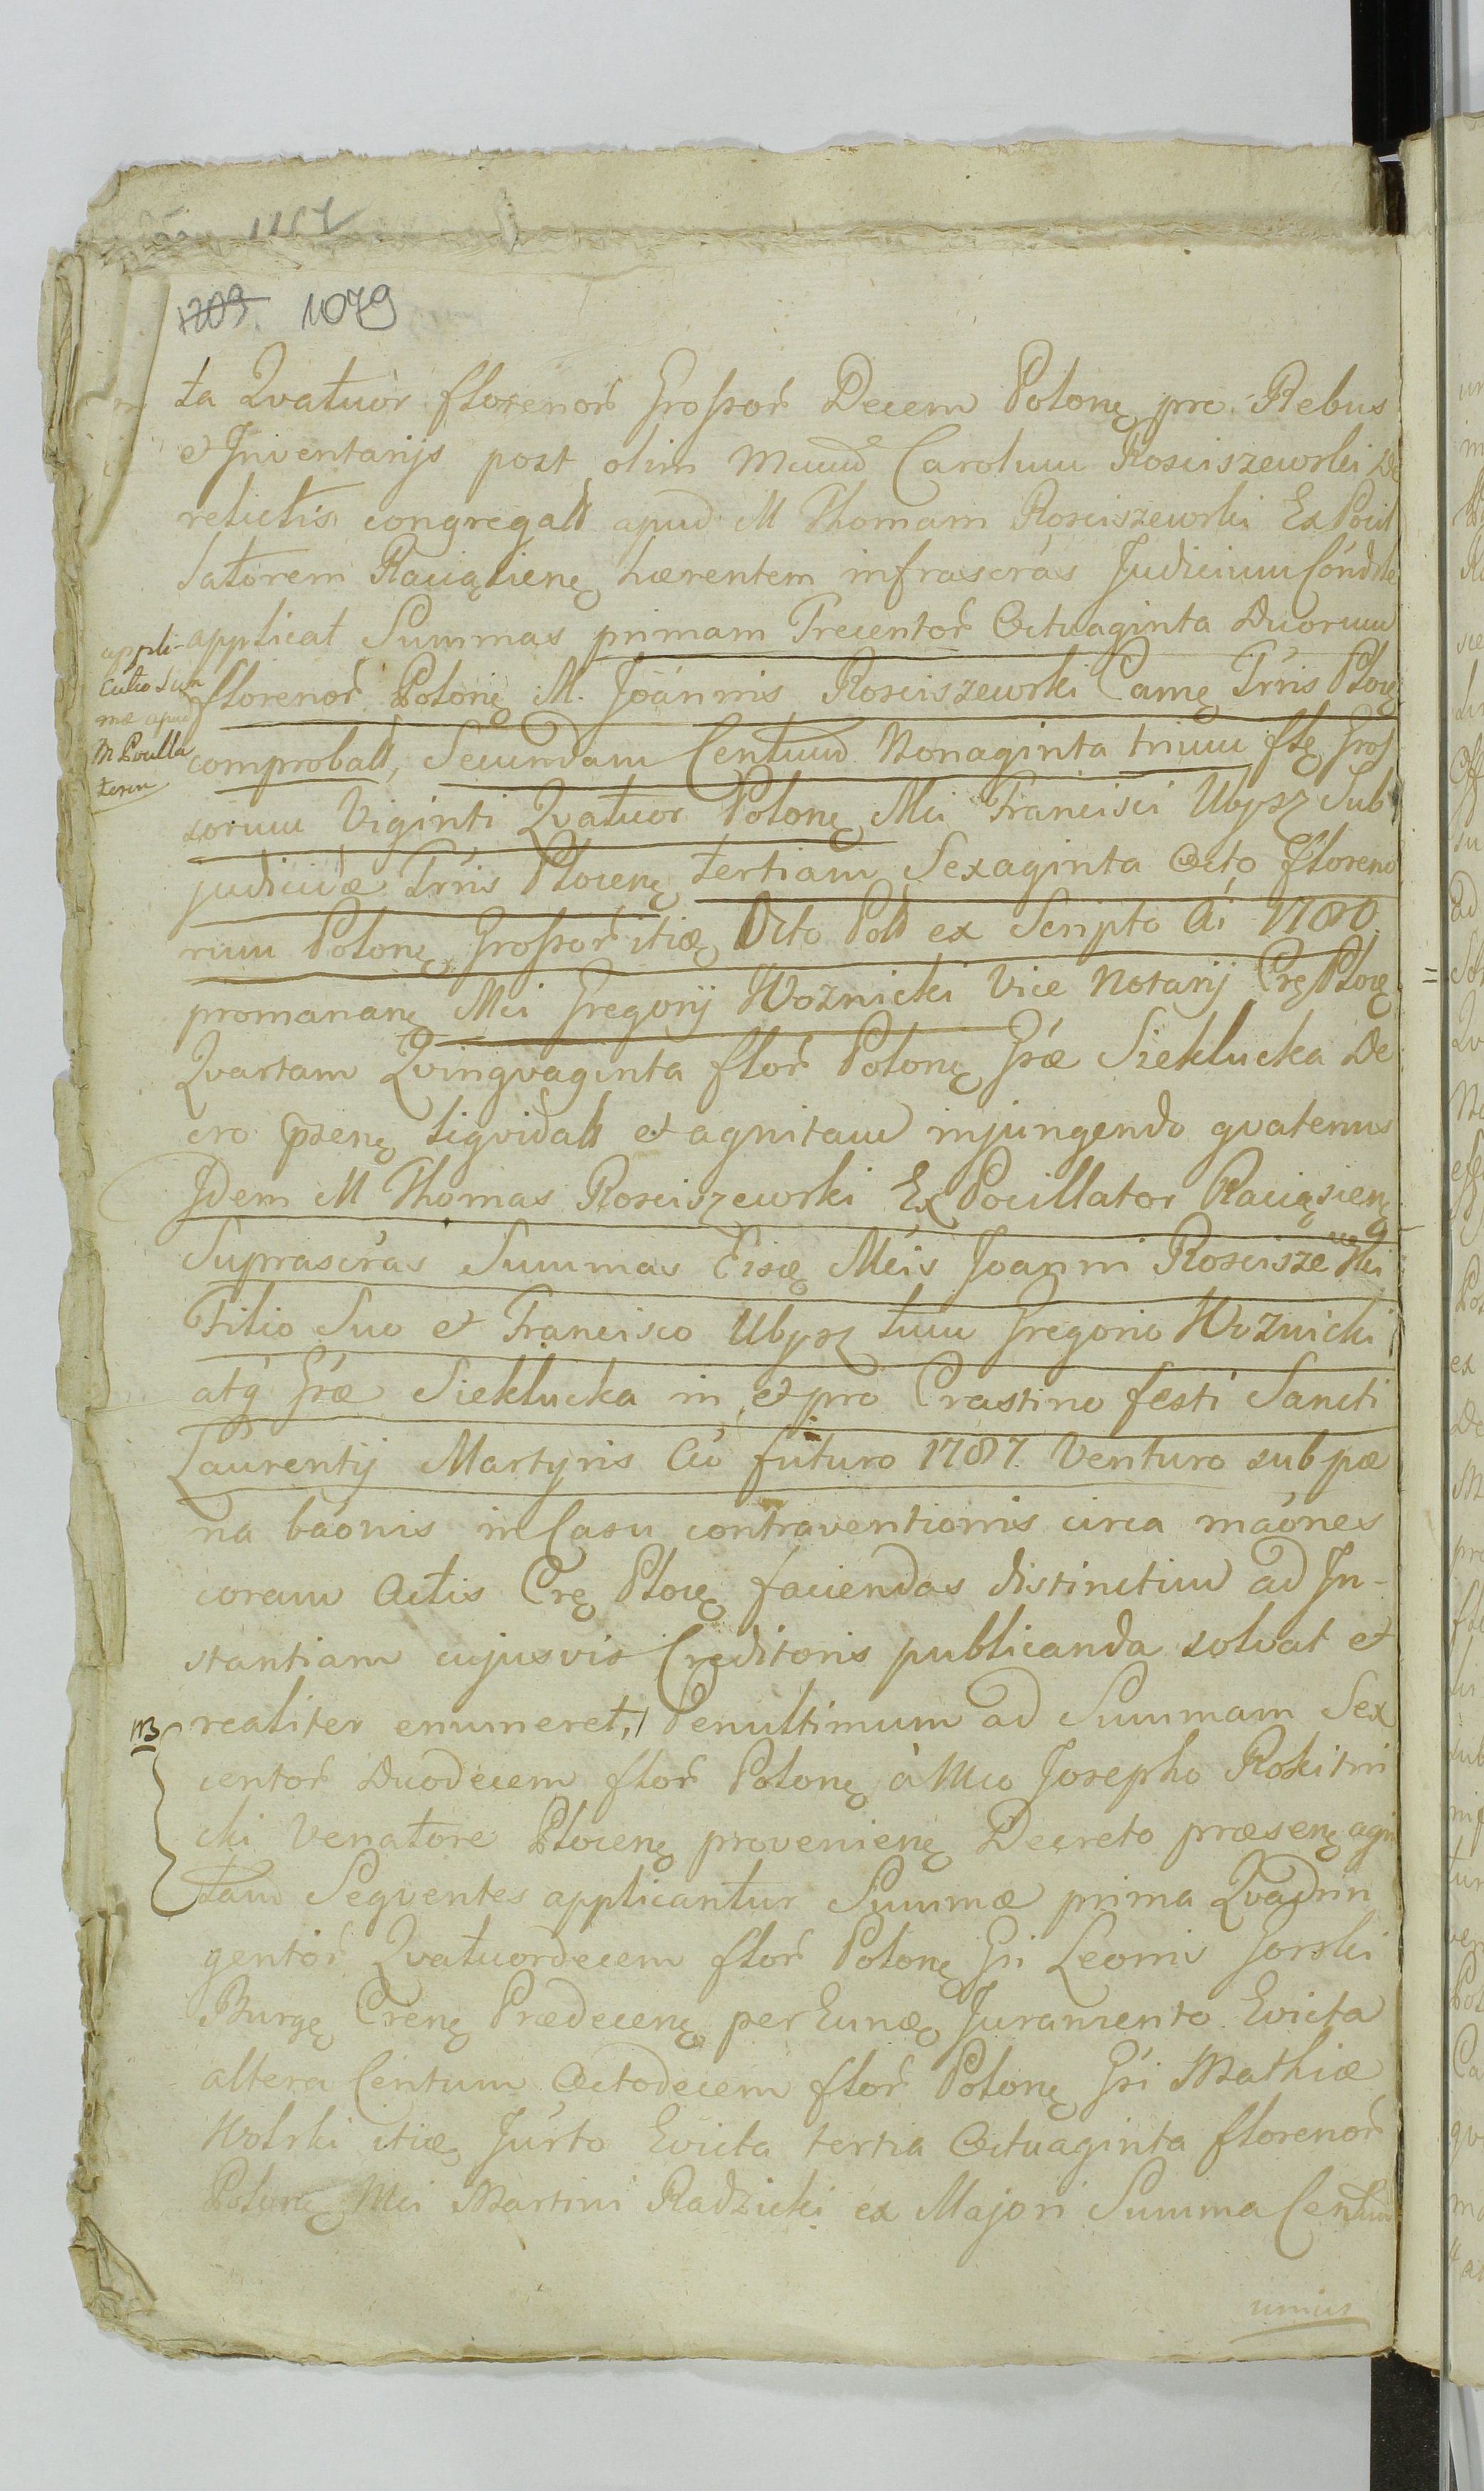 1079
ta Qvatuor florenor̃ Groſsor̃ Decem Polonę pro Rebus
et Inventarijs post olim Mcum Carolum Rosciszewski De
relictis congregatt apud M Thomam Rosciszewski Ex Pocil
latorem Raciążienę hærentem infrascrás Judicium Cóndle
applicat Summas primam Trecentor̃ Octuaginta Duorum
florenor̃ Polonę M. Joánnis Rosciszewski Camę Trńis Płocę
comprobatt, Secundam Centum Nonaginta trium flę Groſ
sorum Viginti Qvatuor Polonę Mci Francisci Ubysz Sub
judicis Trńis Płocenę tertiam Sexaginta Octo floreno
rum Polonę Groſsor̃ itię Octo Poll ex Scripto Ai 1780.
promananę Mci Gregorij Woznicki Vice Notarij Crę Płocę
Qvartam Qvingvaginta flor̃ Polonę Gśæ Sieklucka De
cro pzenę liqvidatt et agnitam injungendo qvatenus
Idem M Thomas Rosciszewski Ex Pocillator Raciąsienę
Suprascrás Summas Eisę Mćis Joanni Rosciszewski
Filio Suo et Francisco Ubysz tum Gregorio Woznicki
atq́ Gśæ Sieklucka in et pro Crastino festi Sancti
Laurentij Martyris Aó futuro 1787. Venturo sub pæ
na báonis in Casu contraventionis circa máones
coram Actis Crę Płocę faciendas distinctim ad In-
stantiam cujusvis Creditoris publicanda solvat et
realiter enumeret, Penultimum ad Summam Sex
centor̃ Duodecem flor̃ Polonę à Mco Josepho Rokitni
cki Venatore Płocenę provenienę Decreto præsenę agni
tam Seqventes applicantur Summæ prima Qvadrin
gentor̃ Qvatuordecem flor̃ Polonę Gśi Leonis Gorski
Burgę Crenę Prædecenę per Eunę Juramento Evicta
altera Centum Octodecem flor̃ Polonę Gśi Mathiæ
Wolski itię Jurto Evicta tertia Octuaginta florenor̃
Polonę Mci Martini Radzicki ex Majori Summa Centum
unius
appli-
catio Sum
mæ apud
M Pocilla
torem
NB